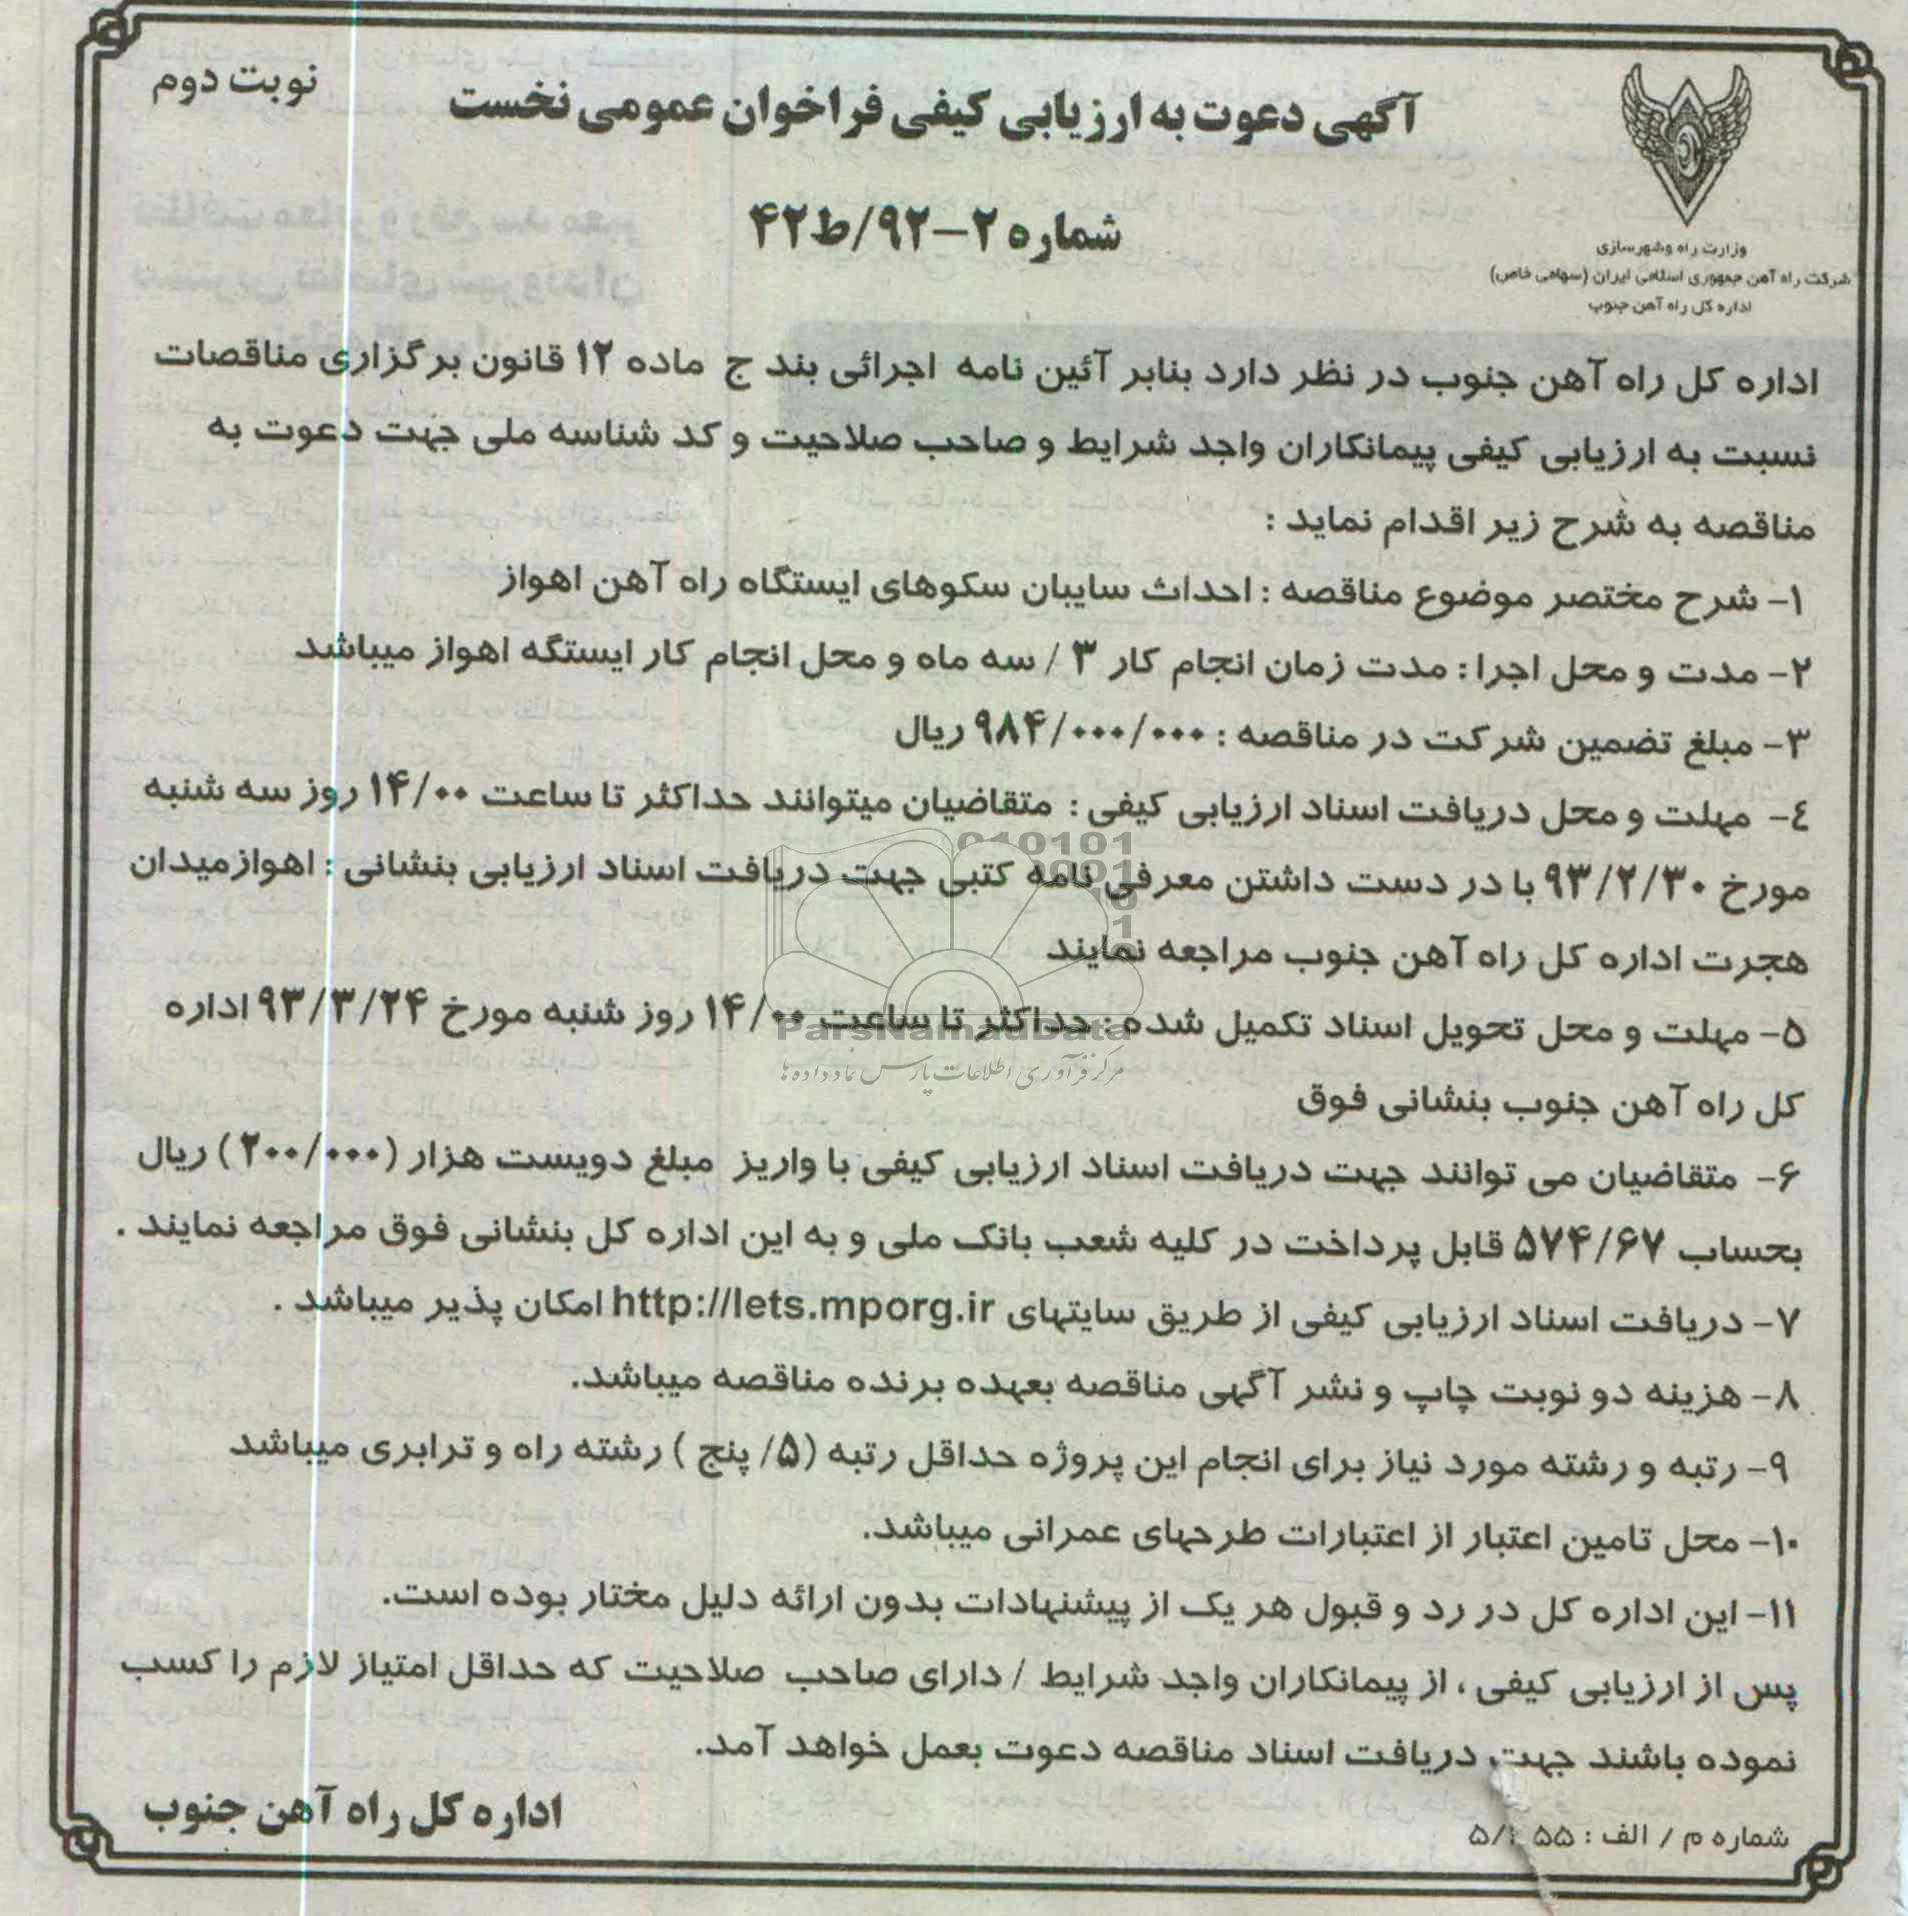 نوبت دوم
آگهی دعوت به ارزیابی کیفی فراخوان عمومی نخست
شماره ۲-۹۲/ط۴۲
وزارت راه وشهرسازی
شرکت راه آهن جمهوری اسلامی ایران (سهامی خاص)
اداره کل راه آهن جنوب
اداره کل راه آهن جنوب در نظر دارد بنابر آئین نامه اجرائی بند ج ماده ۱۲ قانون برگزاری مناقصات
نسبت به ارزیابی کیفی پیمانکاران واجد شرایط و صاحب صلاحیت و کد شناسه ملی جهت دعوت به
مناقصه به شرح زیر اقدام نماید :
۱- شرح مختصر موضوع مناقصه : احداث سایبان سکوهای ایستگاه راه آهن اهواز
۲- مدت و محل اجرا : مدت زمان انجام کار ۳ / سه ماه و محل انجام کار ایستگه اهواز میباشد
۳- مبلغ تضمین شرکت در مناقصه : ۹۸۴/۰۰۰/۰۰۰ ریال
٤- مهلت و محل دریافت اسناد ارزیابی کیفی : متقاضیان میتوانند حداکثر تا ساعت ۱۴/۰۰ روز سه شنبه
مورخ ۹۳/۲/۳۰ با در دست داشتن معرفی نامه کتبی جهت دریافت اسناد ارزیابی بنشانی : اهوازمیدان
هجرت اداره کل راه آهن جنوب مراجعه نمایند
۵- مهلت و محل تحویل اسناد تکمیل شده : حداکثر تا ساعت ۱۴/۰۰ روز شنبه مورخ ۹۳/۳/۲۴ اداره
کل راه آهن جنوب بنشانی فوق
۶- متقاضیان می توانند جهت دریافت اسناد ارزیابی کیفی با واریز مبلغ دویست هزار (۲۰۰/۰۰۰) ریال
بحساب ۵۷۴/۶۷ قابل پرداخت در کلیه شعب بانک ملی و به این اداره کل بنشانی فوق مراجعه نمایند .
۷- دریافت اسناد ارزیابی کیفی از طریق سایتهای http://lets.mporg.ir امکان پذیر میباشد .
۸- هزینه دو نوبت چاپ و نشر آگهی مناقصه بعهده برنده مناقصه میباشد.
۹- رتبه و رشته مورد نیاز برای انجام این پروژه حداقل رتبه (۵/ پنج ) رشته راه و ترابری میباشد
۱۰- محل تامین اعتبار از اعتبارات طرحهای عمرانی میباشد.
۱۱- این اداره کل در رد و قبول هر یک از پیشنهادات بدون ارائه دلیل مختار بوده است.
پس از ارزیابی کیفی ، از پیمانکاران واجد شرایط / دارای صاحب صلاحیت که حداقل امتیاز لازم را کسب
نموده باشند جهت دریافت اسناد مناقصه دعوت بعمل خواهد آمد.
اداره کل راه آهن جنوب
شماره م / الف :
ParsNamadData
مرکز فرآوری اطلاعات پارس نماد داده ها